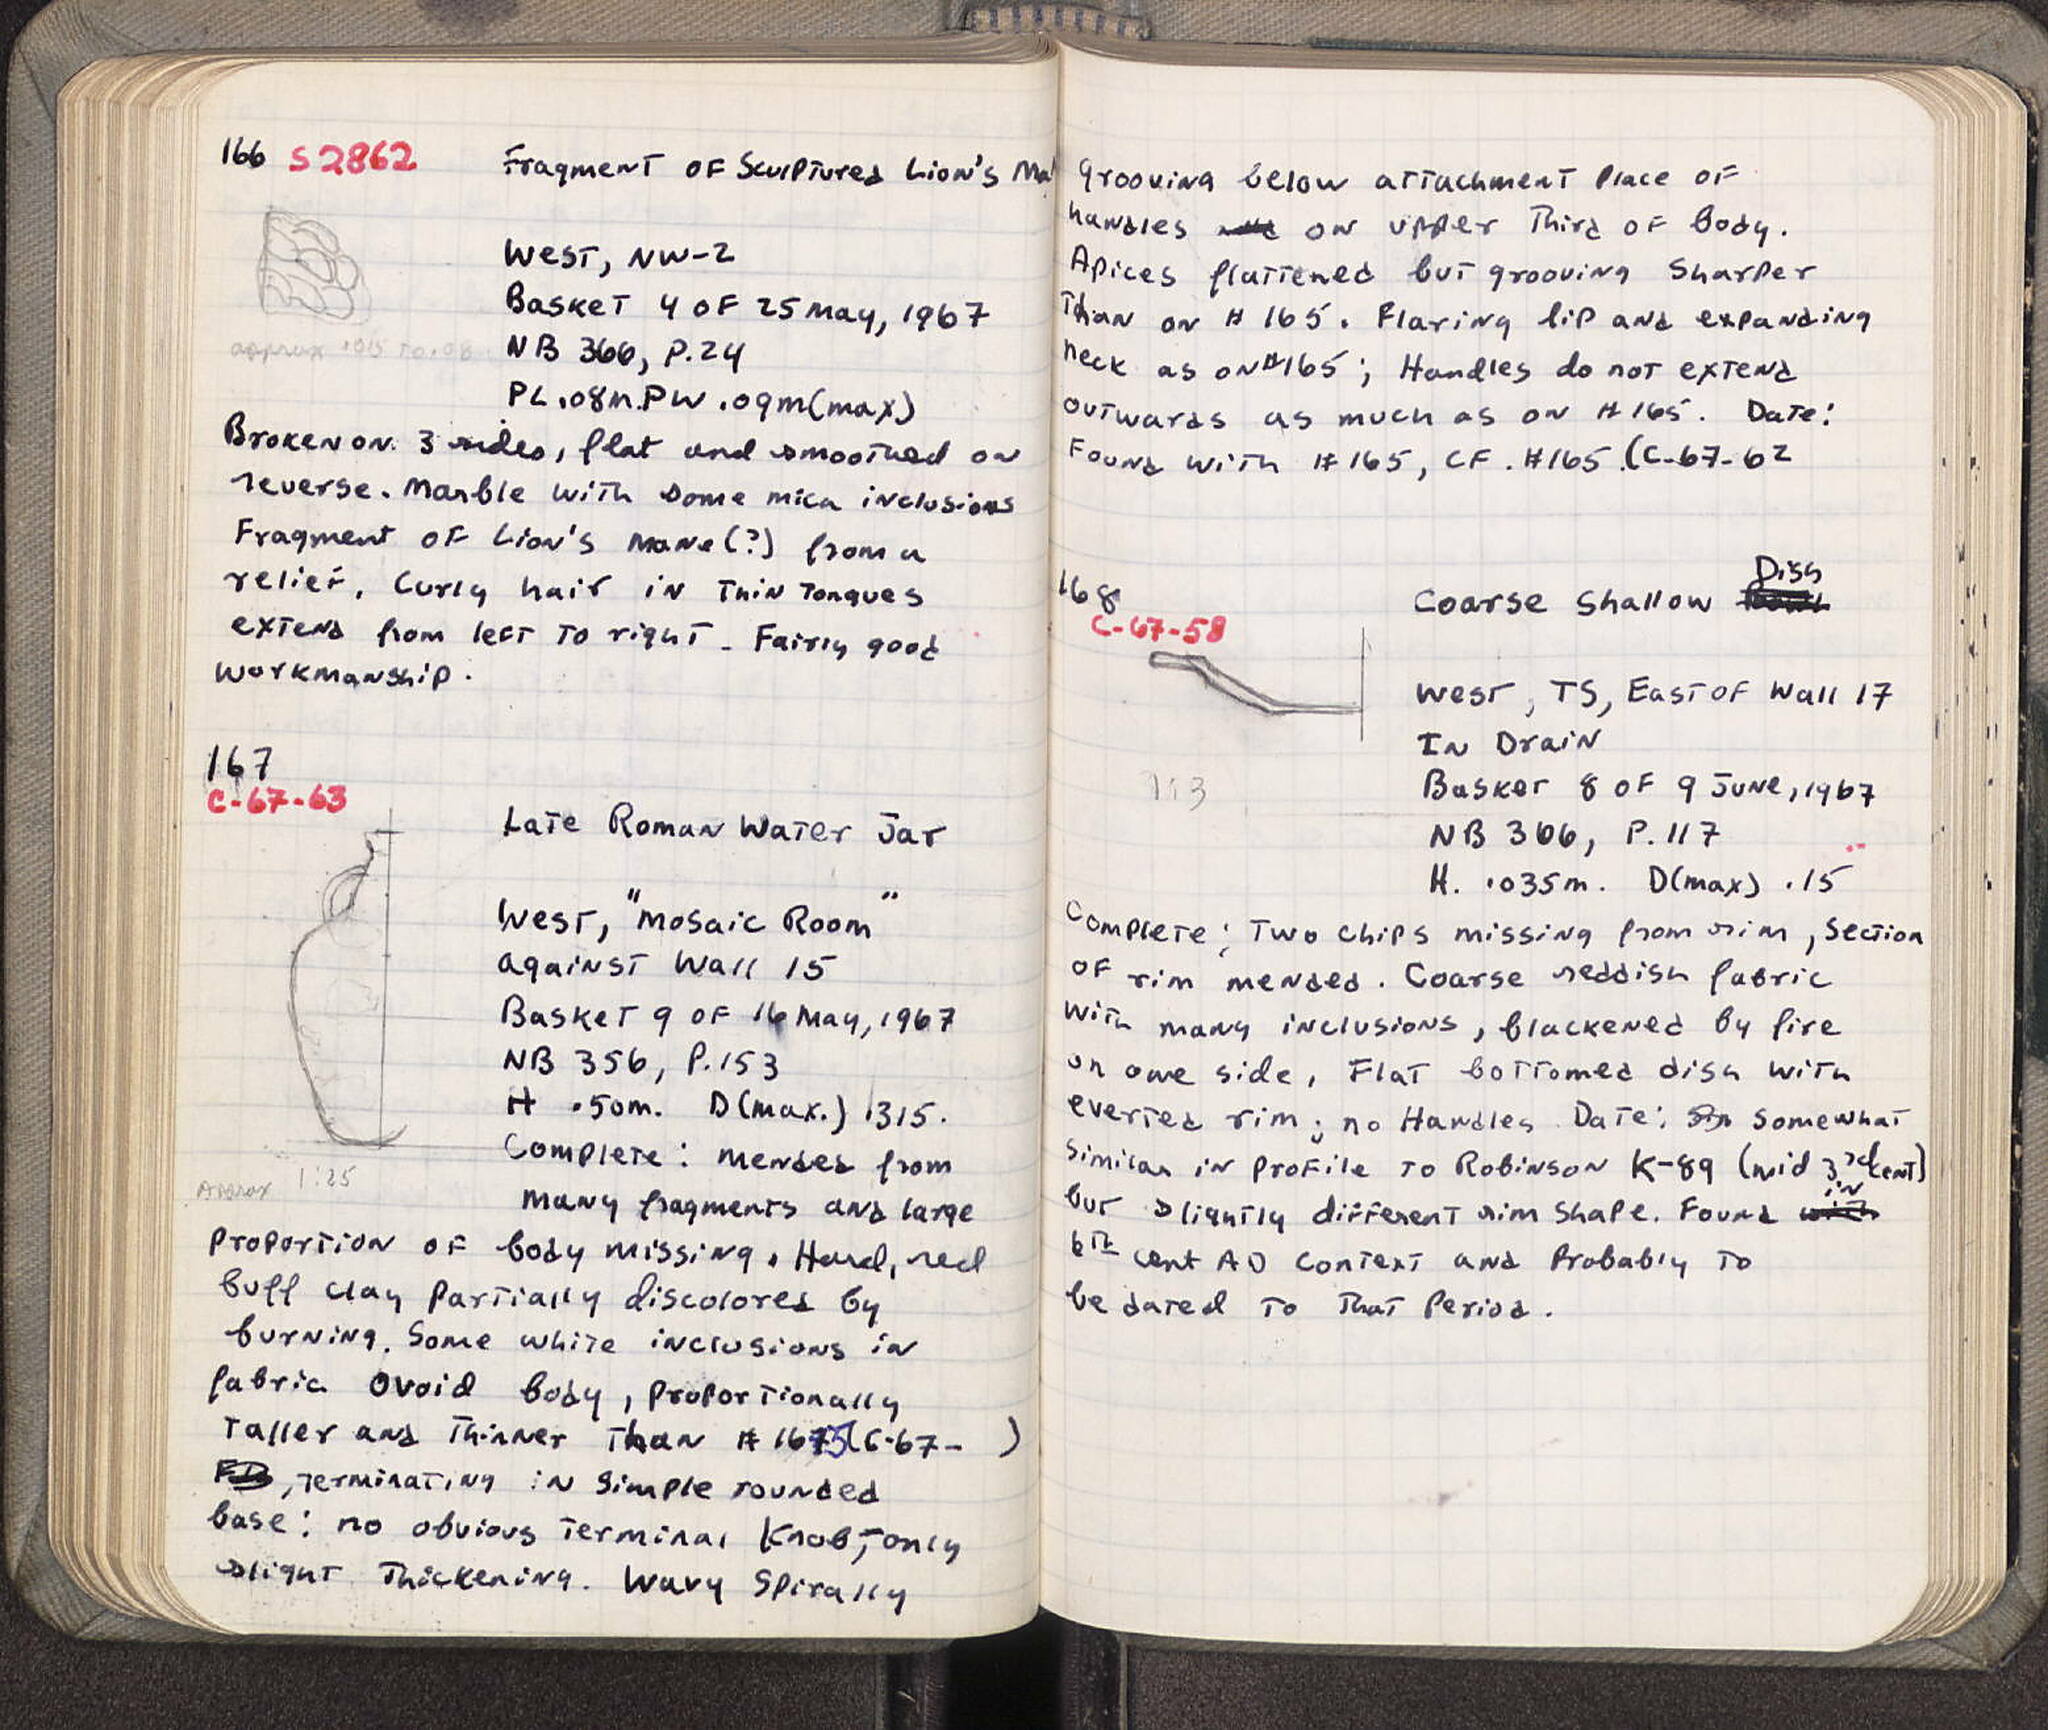 166 S 2862 Fragment of Sculptured Lion's Ma
West, NW-2
Basket 4 of 25 May, 1967
approx .015 to .08
NB 366, P.24
PL .08m. PW .09m (max)
Broken on 3 sides, flat and smoothed on
reverse. Marble with some mica inclusions
Fragment of Lion's Mane (?) from a
relief. Curly hair in thin tongues
extend from left to right. Fairly good
workmanship.
167
C-67-63
Late Roman Water Jar
West, "Mosaic Room"
against Wall 15
Basket 9 of 16 May, 1967
NB 356, P.153
H .50m. D(max.) .315.
Complete: mended from
approx 1:25
many fragments and large
proportion of body missing. Hard, red
buff clay partially discolored by
burning. Some white inclusions in
fabric Ovoid body, proportionally
taller and thinner than # 165 (C-67- )
, terminating in simple rounded
base: no obvious terminal knob, only
slight thickening. Wavy spirally
grooving below attachment place of
handles on upper third of body.
Apices flattened but grooving sharper
than on # 165. Flaring lip and expanding
neck as on #165; Handles do not extend
outwards as much as on # 165. Date:
Found with # 165, CF. #165 (C-67-62
168
C-67-58
Coarse Shallow Dish
West, TS, East of Wall 17
In Drain
1:3
Basket 8 of 9 June, 1967
NB 366, P.117
H. .035m. D(max) .15
Complete; two chips missing from rim, section
of rim mended. Coarse reddish fabric
with many inclusions, blackened by fire
on one side, Flat bottomed dish with
everted rim; no Handles Date: Somewhat
similar in profile to Robinson K-89 (mid 3rd cent)
but slightly different rim shape. Found in
6th cent AD context and probably to
be dated to that period.